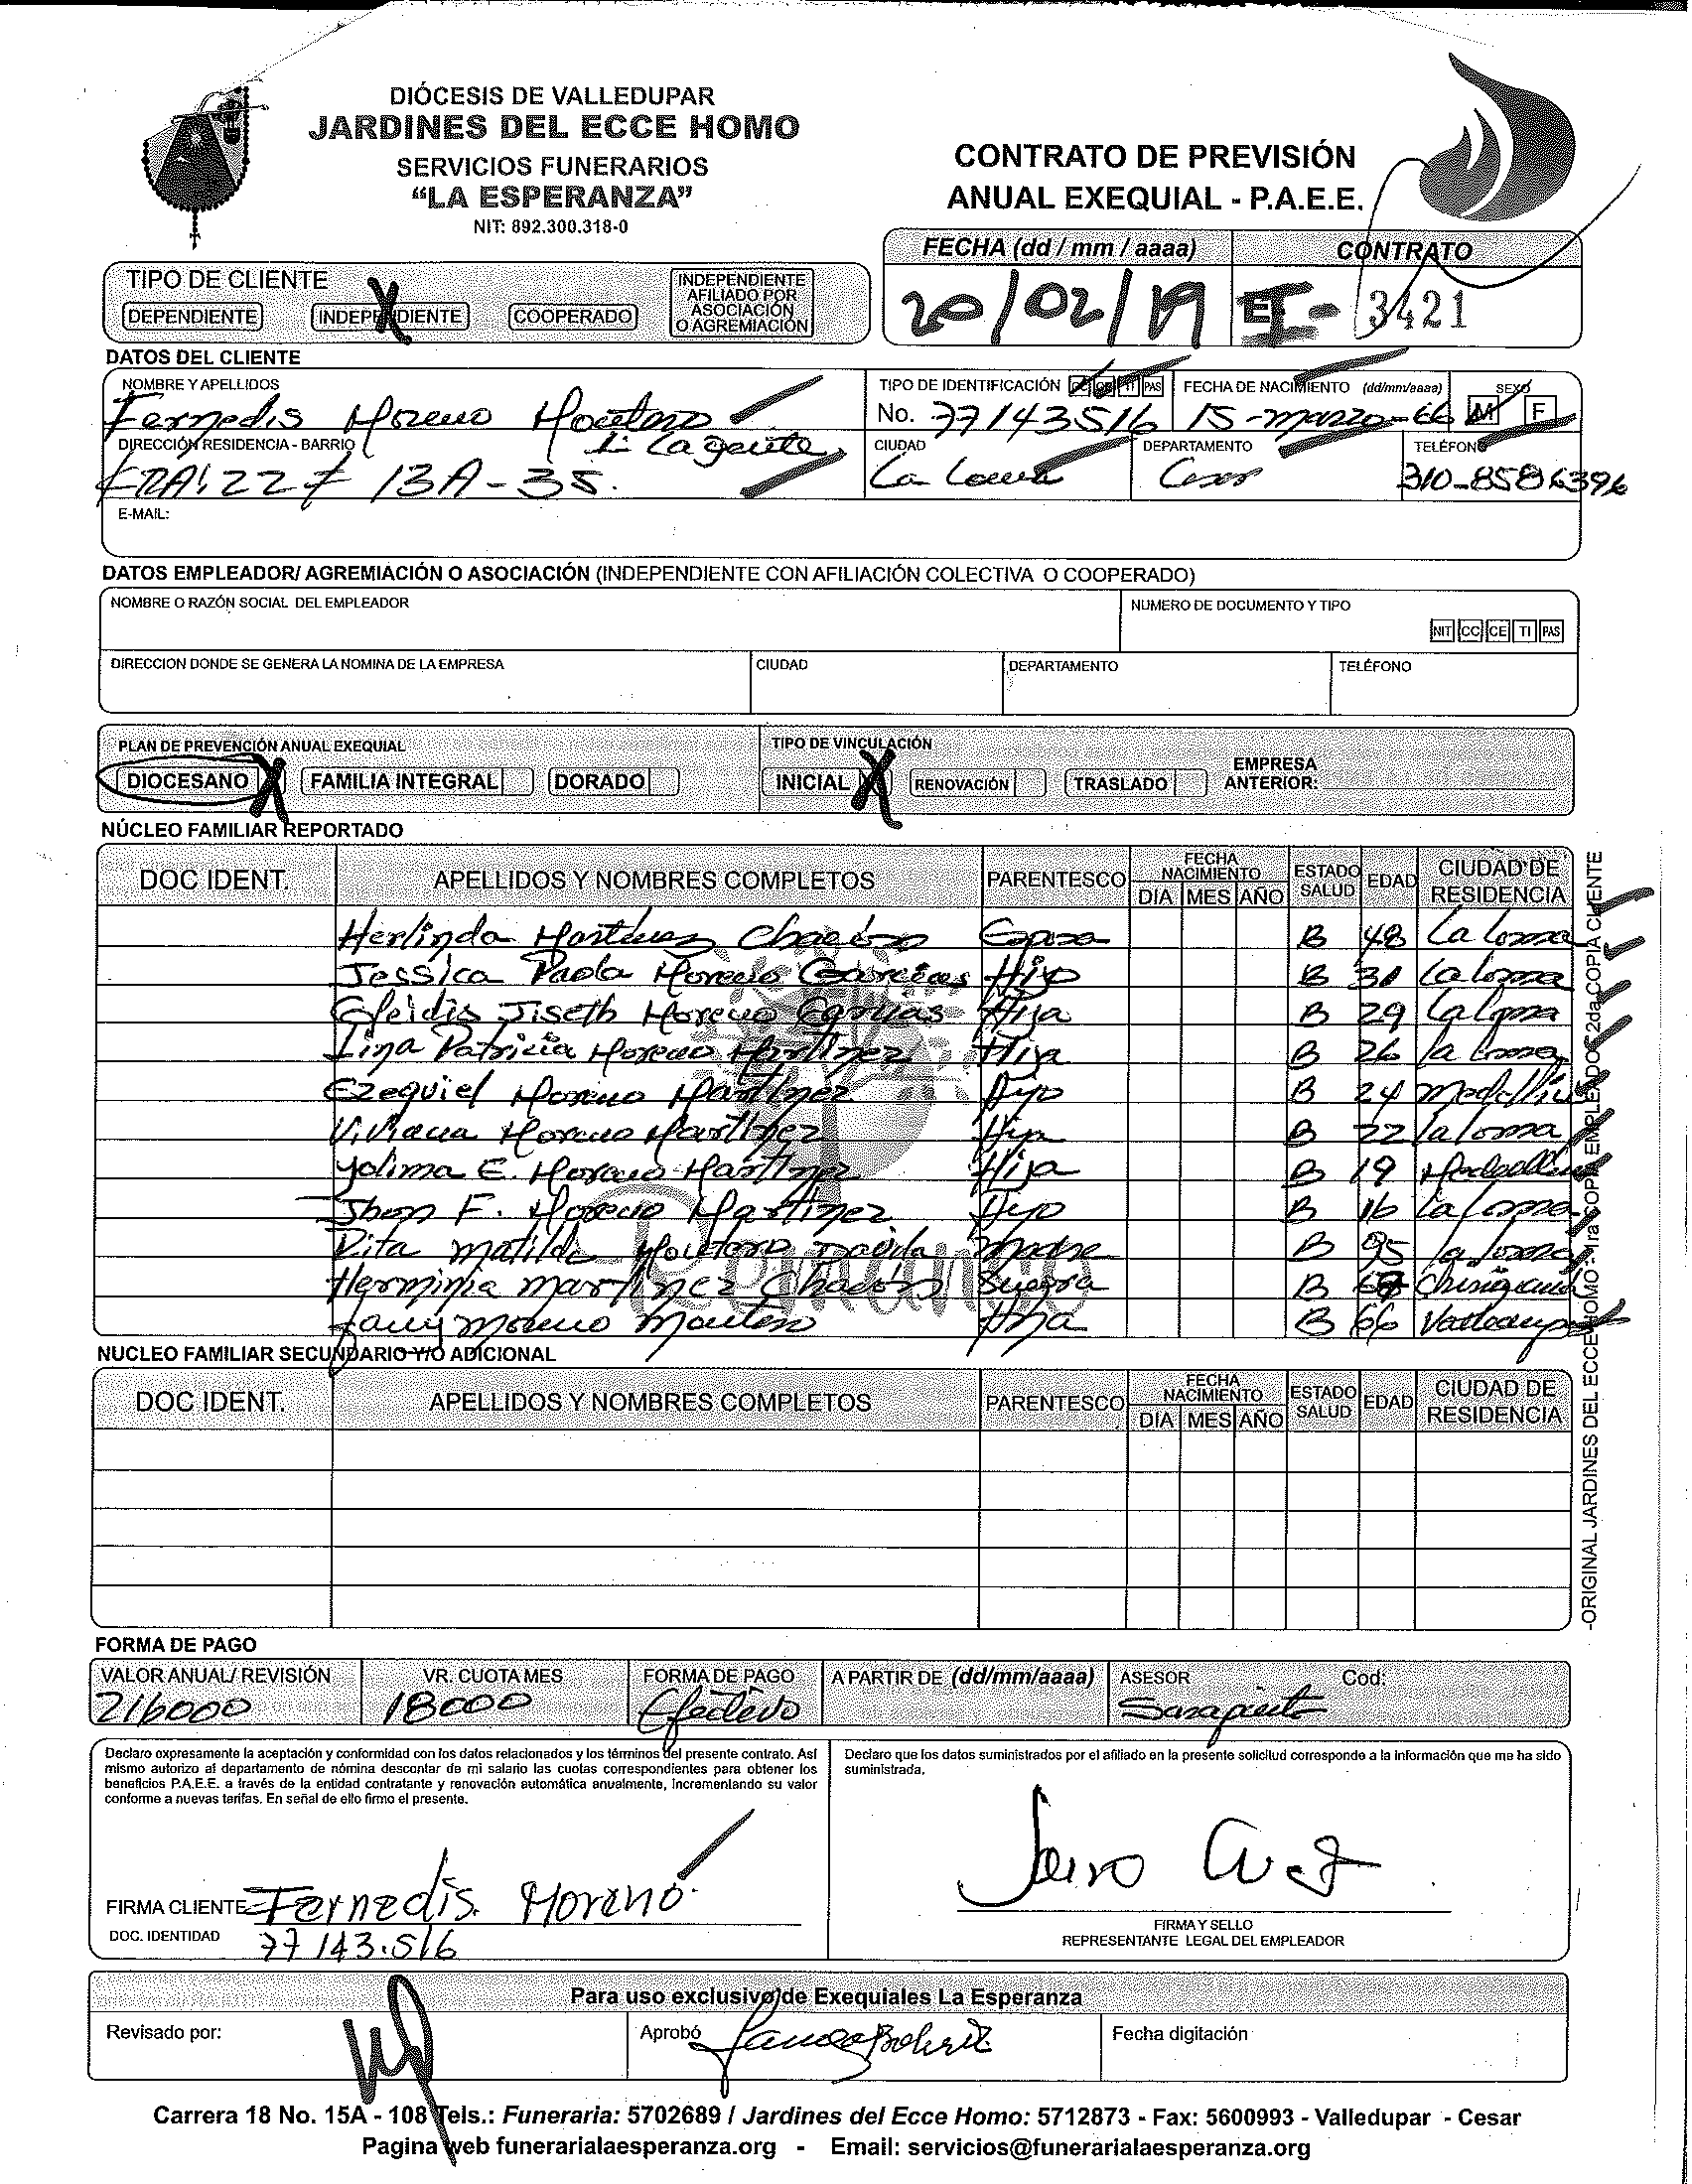 DIÓCESIS DE VALLEDUPAR
JARDINES DEL ECCE HOMO
SERVICIOS FUNERARIOS
“LA ESPERANZA”
NIT: 892.300.318-0
CONTRATO DE PREVISIÓN
ANUAL EXEQUIAL - P.A.E.E.
FECHA (dd / mm / aaaa) CONTRATO
20/02/19 EI- 3421
TIPO DE CLIENTE
DEPENDIENTE INDEPENDIENTE X COOPERADO INDEPENDIENTE AFILIADO POR ASOCIACIÓN O AGREMIACIÓN
DATOS DEL CLIENTE
NOMBRE Y APELLIDOS TIPO DE IDENTIFICACIÓN CC CE TI PAS FECHA DE NACIMIENTO (dd/mm/aaaa) SEXO
Fernedis Moreno Montero No. 77143516 15-marzo-66 M F
DIRECCIÓN RESIDENCIA - BARRIO CIUDAD DEPARTAMENTO TELÉFONO
KRA! 22 # 13A-35. La Loma Cesar 310-8586396
E-MAIL:
DATOS EMPLEADOR/ AGREMIACIÓN O ASOCIACIÓN (INDEPENDIENTE CON AFILIACIÓN COLECTIVA O COOPERADO)
NOMBRE O RAZÓN SOCIAL DEL EMPLEADOR NUMERO DE DOCUMENTO Y TIPO
NIT CC CE TI PAS
DIRECCION DONDE SE GENERA LA NOMINA DE LA EMPRESA CIUDAD DEPARTAMENTO TELÉFONO
PLAN DE PREVENCIÓN ANUAL EXEQUIAL TIPO DE VINCULACIÓN
DIOCESANO X FAMILIA INTEGRAL DORADO INICIAL X RENOVACIÓN TRASLADO EMPRESA ANTERIOR:
NÚCLEO FAMILIAR REPORTADO
DOC IDENT. APELLIDOS Y NOMBRES COMPLETOS PARENTESCO FECHA NACIMIENTO DIA MES AÑO ESTADO SALUD EDAD CIUDAD DE RESIDENCIA
Herlinda Martinez Chacon Esposa B 48 La Loma
Jessica Paola Moreno Garcias Hija B La Loma
Gleidis Jiseth Moreno Garcias Hija B 29 La Loma
Lina Patricia Moreno Martinez Hija B 26 La Loma
Ezequiel Moreno Martinez Hijo B 24 Medellin
Viviana Moreno Martinez Hija B 22 La Loma
Yolima E. Moreno Martinez Hija B 19 Medellin
Jhon F. Moreno Martinez Hijo B 16 La Loma
Rita Matilde Montero Davila Madre B 95 La Loma
Herminia Martinez Chacon Suegra B Chiriguaná
Fanny Moreno Montero Hna B 66 Valledupar
NUCLEO FAMILIAR SECUNDARIO Y/O ADICIONAL
DOC IDENT. APELLIDOS Y NOMBRES COMPLETOS PARENTESCO FECHA NACIMIENTO DIA MES AÑO ESTADO SALUD EDAD CIUDAD DE RESIDENCIA
-ORIGINAL JARDINES DEL ECCE HOMO -1ra COPIA EMPLEADOR 2da COPIA CLIENTE
FORMA DE PAGO
VALOR ANUAL/ REVISIÓN VR. CUOTA MES FORMA DE PAGO A PARTIR DE (dd/mm/aaaa) ASESOR Cod:
216000 18000 Efectivo
Declaro expresamente la aceptación y conformidad con los datos relacionados y los términos del presente contrato. Así
mismo autorizo al departamento de nómina descontar de mi salario las cuotas correspondientes para obtener los
beneficios P.A.E.E. a través de la entidad contratante y renovación automática anualmente, incrementando su valor
conforme a nuevas tarifas. En señal de ello firmo el presente.
Declaro que los datos suministrados por el afiliado en la presente solicitud corresponde a la información que me ha sido
suministrada.
FIRMA CLIENTE Fernedis. Moreno
DOC. IDENTIDAD 77143.516
FIRMA Y SELLO
REPRESENTANTE LEGAL DEL EMPLEADOR
Para uso exclusivo de Exequiales La Esperanza
Revisado por: Aprobó Fecha digitación
Carrera 18 No. 15A - 108 Tels.: Funeraria: 5702689 / Jardines del Ecce Homo: 5712873 - Fax: 5600993 - Valledupar - Cesar
Pagina web funerarialaesperanza.org - Email: servicios@funerarialaesperanza.org